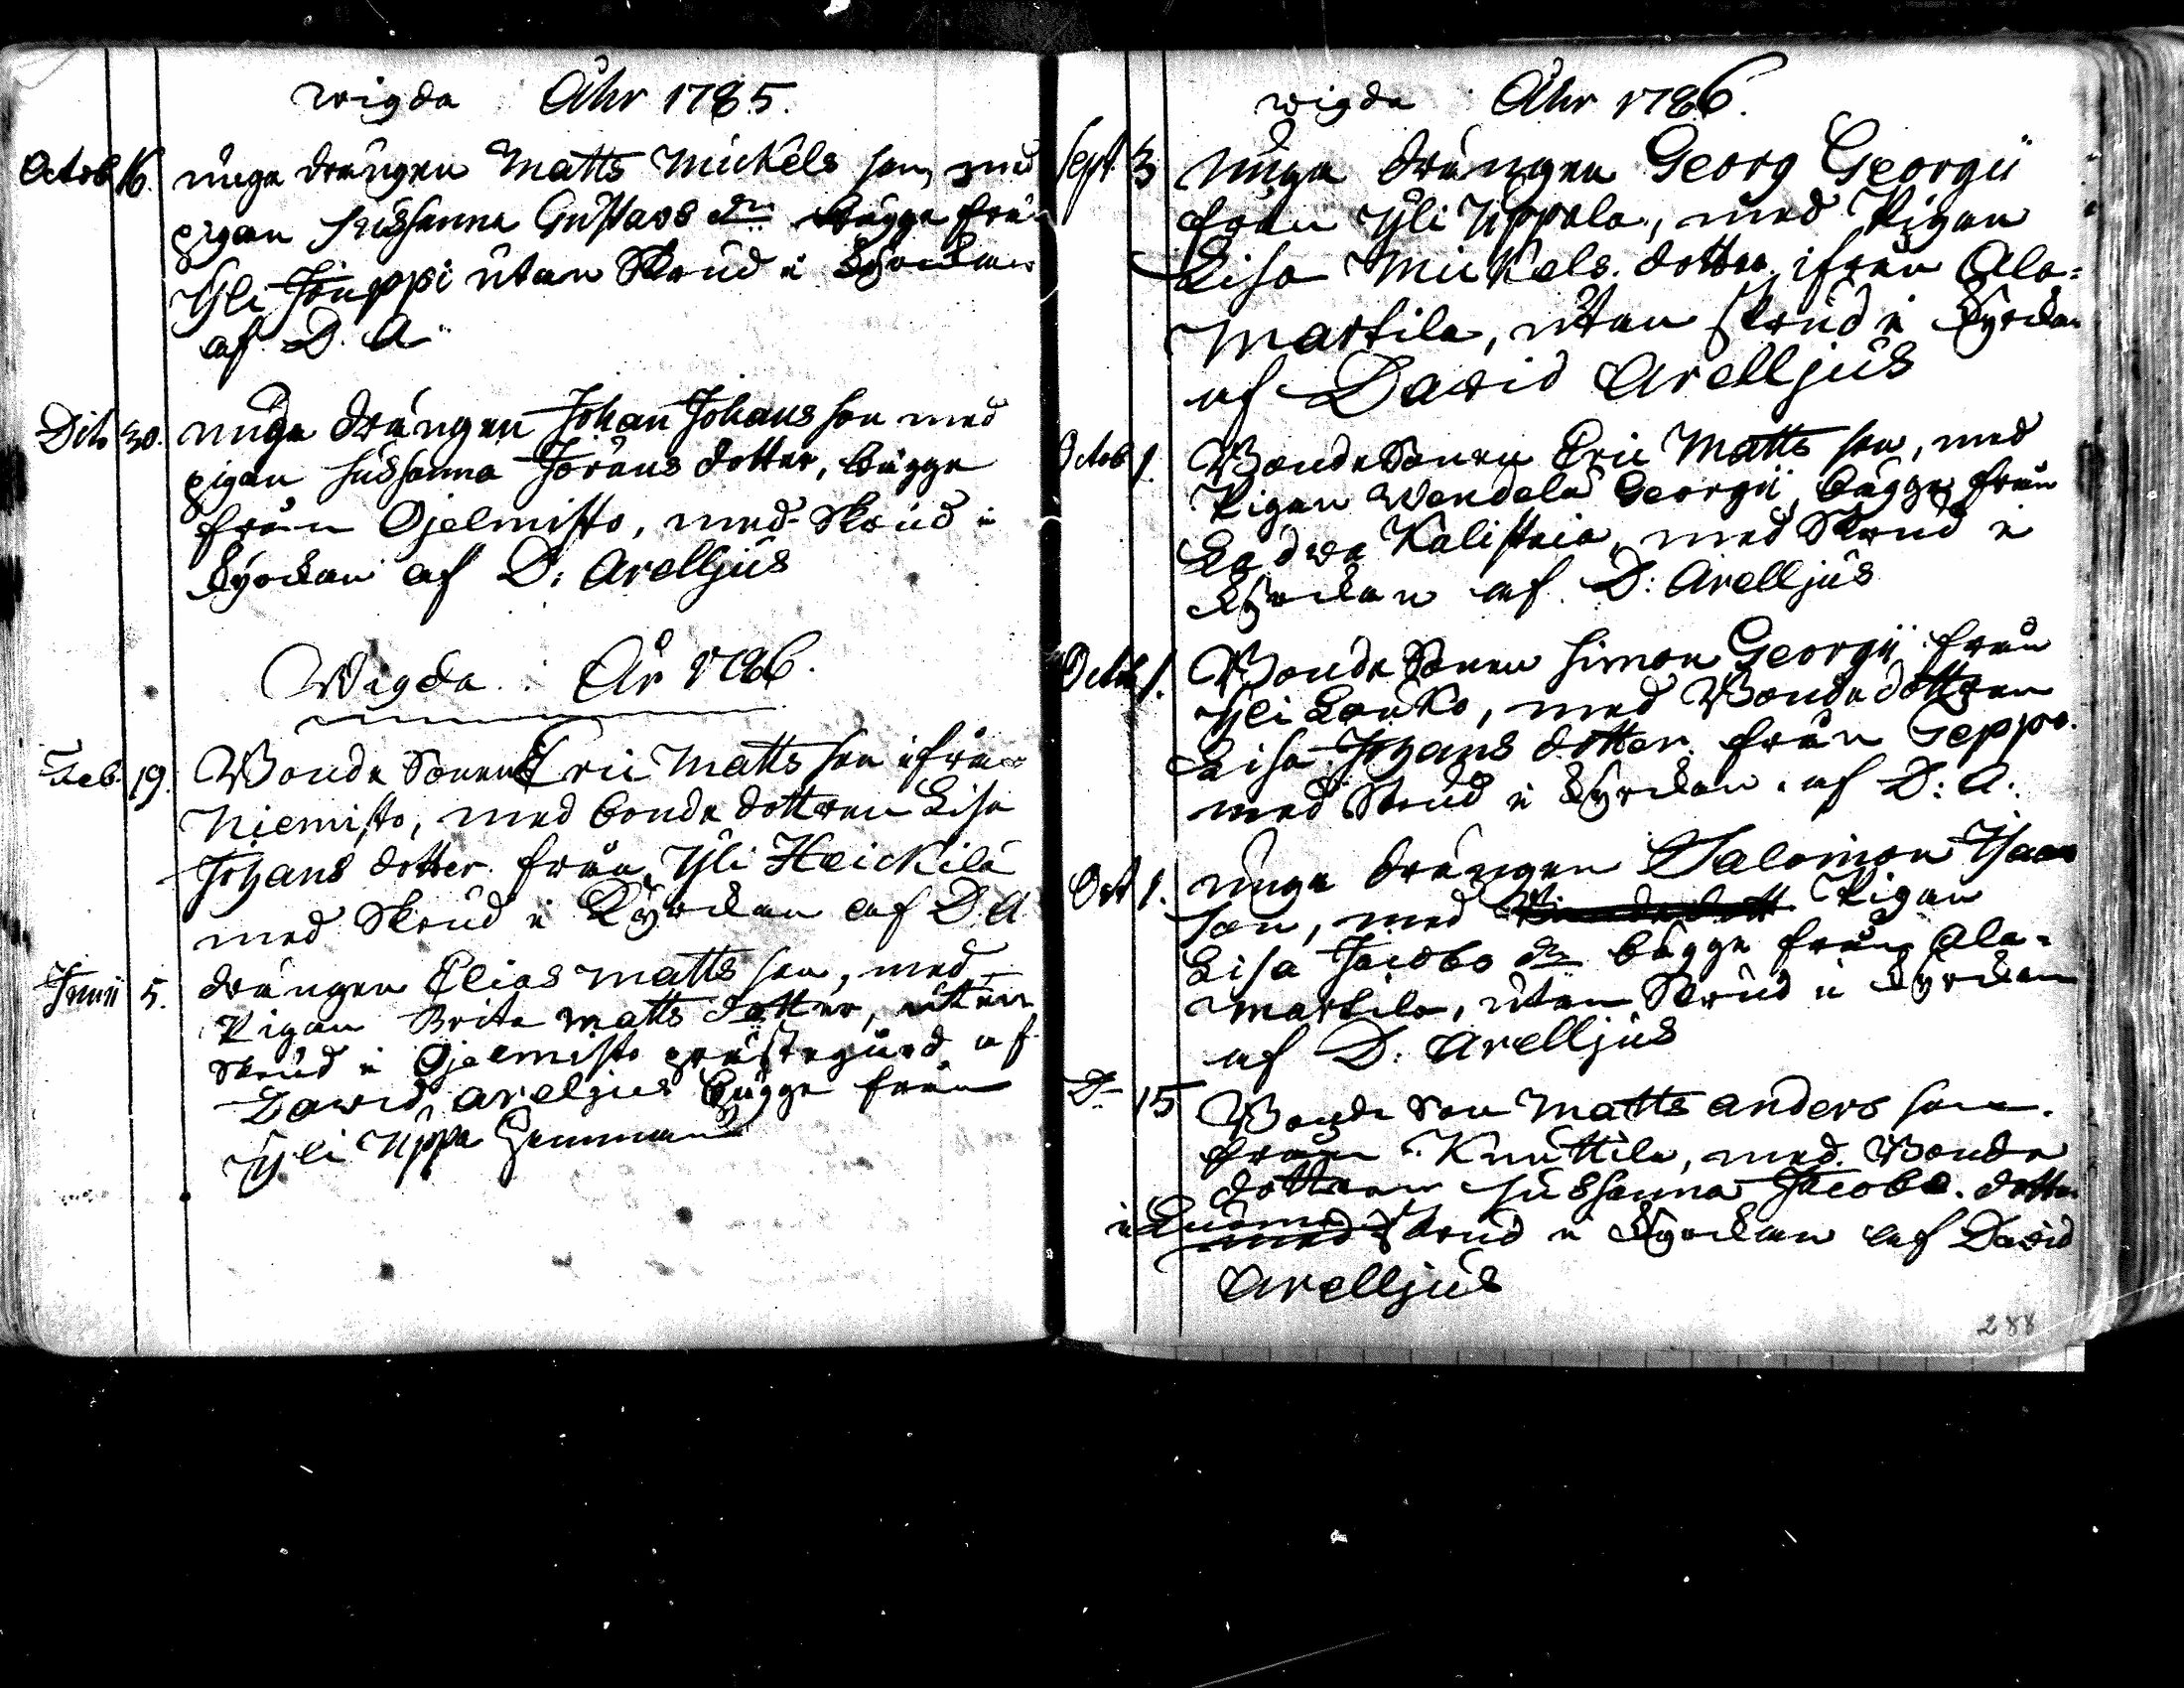 wigda Åhr 1785.
Octob 16. unga drängen Matts Mickels son med
pigan Sussanna Gustavs dr bägge från
Yli Jouppi utan Skrud i Kyrckan
af D. A.
Dito 30. unga drängen Johan Johans son med
pigan Sussanna Jörans dotter, bägge
från Ojelmisto, med Skrud i
Kyrckan af D: Arelljus
Wigda År 1786.
Feb. 19. Bonde Sonen Eric Matts son ifrån
Niemisto, med bonde dottren Lisa
Johans dotter från Yli Heickilä
med Skrud i Kyrckan af D. A
Junii 5. drängen Elias Matts son, med
Pigan Brita Matts dotter, utan
Skrud i Ojelmisto prästegård af
David Areljus bägge från
Yli Uppa
wigda Åhr 1786.
Sept. 3 unga drängen Georg Georgii
från Yli Uppala, med Pigan
Lisa Mickels dotter ifrån Ala=
Martila, utan skrud i Kyrckan
af David Arelljus
Octob 1. Bonde Sonen Eric Matts son, med
Pigan Wendela Georgii bägge från
Kalistaia, med Skrud i
Kyrckan af D: Arelljus
Octob 1. Bonde Sonen Simon Georgii från
Yli Lauko, med Bonde dottren
Lisa Johans dotter från Seppo.
med Skrud i Kyrckan af D: A.
Oct 1. unga drängen Salomon Isaac
son, med Bonde dott Pigan
Lisa Jacobs dr bägge från Ala=
martila, utan Skrud i Kyrckan
af D. Arelljus
D– 15 Bonde Son Matts Anders son
från Knuttila, med Bonde
dottren Sussanna Jacobs dotter
i Luoma med Skrud i Kyrckan af David
Arelljus
288